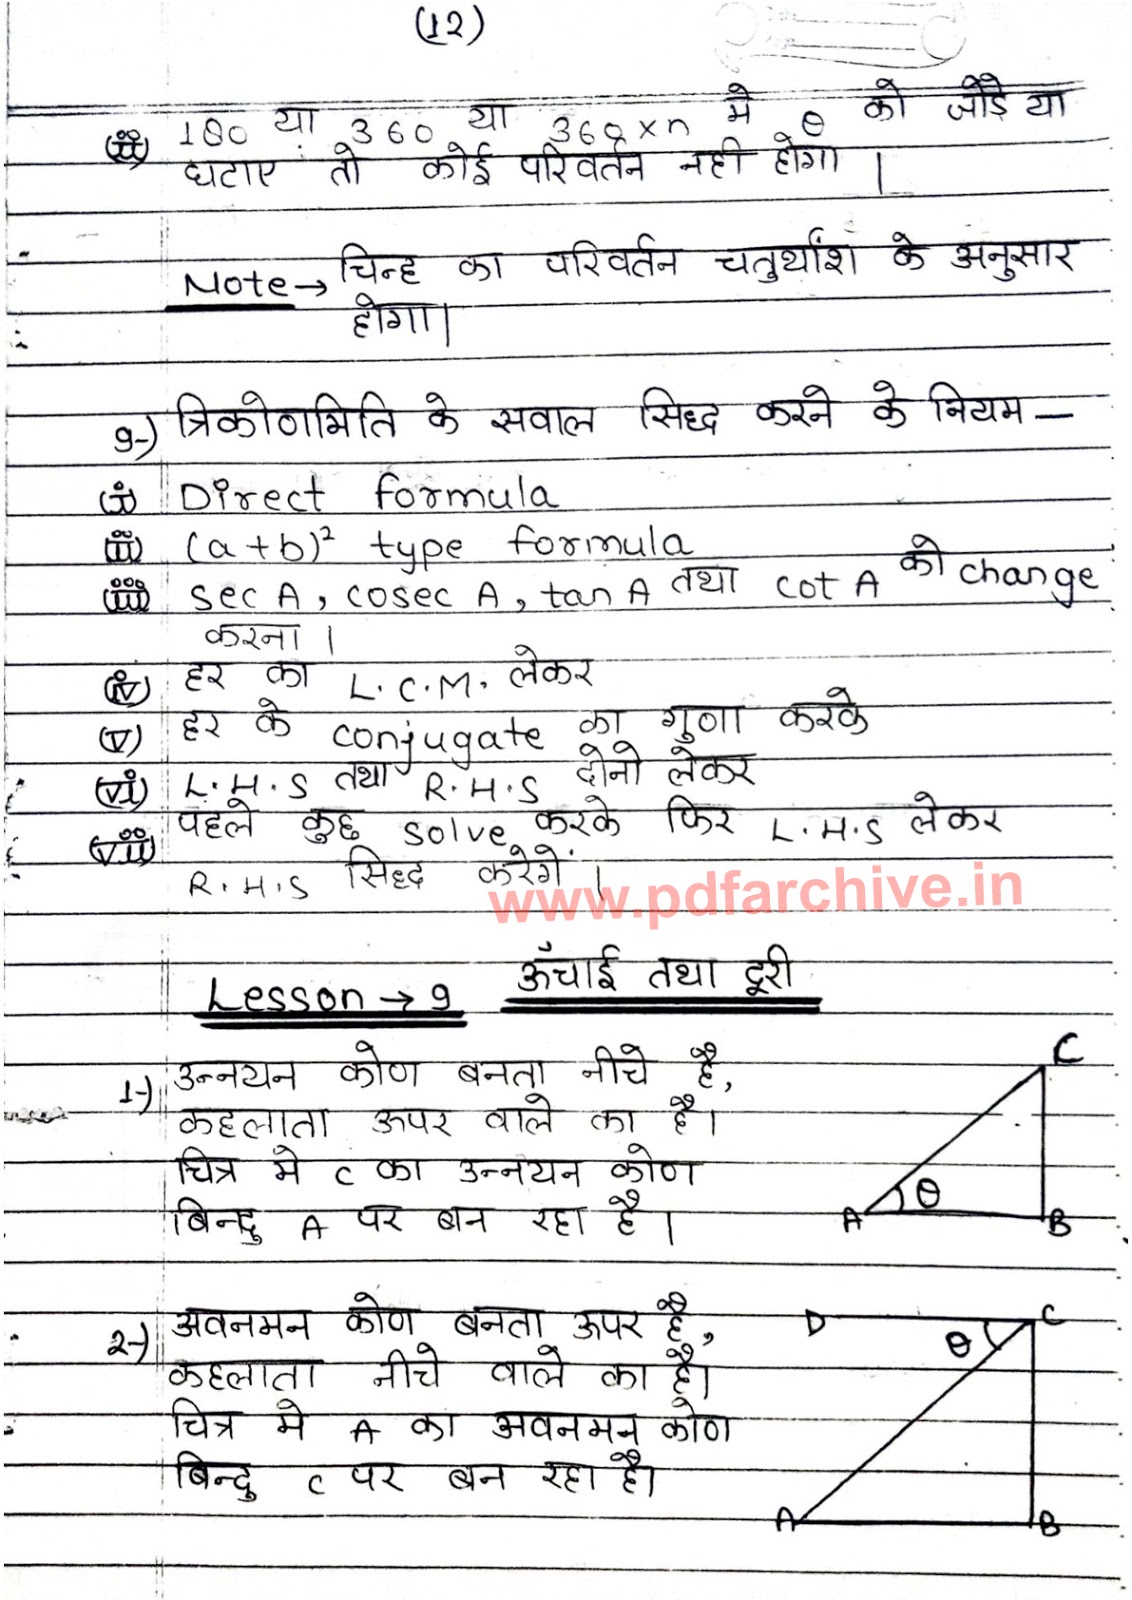 (12)
(ii) 180 या 360 या 360×n मे θ को जोड़ै या
घटाए तो कोई परिवर्तन नही होगा |
Note→ चिन्ह का परिवर्तन चतुर्थांश के अनुसार
होगा|
9-) त्रिकोणमिति के सवाल सिध्द करने के नियम —
(i) Direct formula
(ii) (a+b)² type formula
(iii) sec A, cosec A, tan A तथा cot A को change
करना |
(iv) हर का L.C.M. लेकर
(v) हर के conjugate का गुणा करके
(vi) L.H.S तथा R.H.S दोनो लेकर
(vii) पहले कुछ solve करके फिर L.H.S लेकर
R.H.S सिध्द करेगें |
www.pdfarchive.in
Lesson → 9 ऊँचाई तथा दूरी
1-) उन्नयन कोण बनता नीचे है,
कहलाता ऊपर वाले का है|
चित्र मे C का उन्नयन कोण
बिन्दु A पर बन रहा है |
C
θ
A B
2-) अवनमन कोण बनता ऊपर है,
कहलाता नीचे वाले का है|
चित्र मे A का अवनमन कोण
बिन्दु C पर बन रहा है|
D C
θ
A B